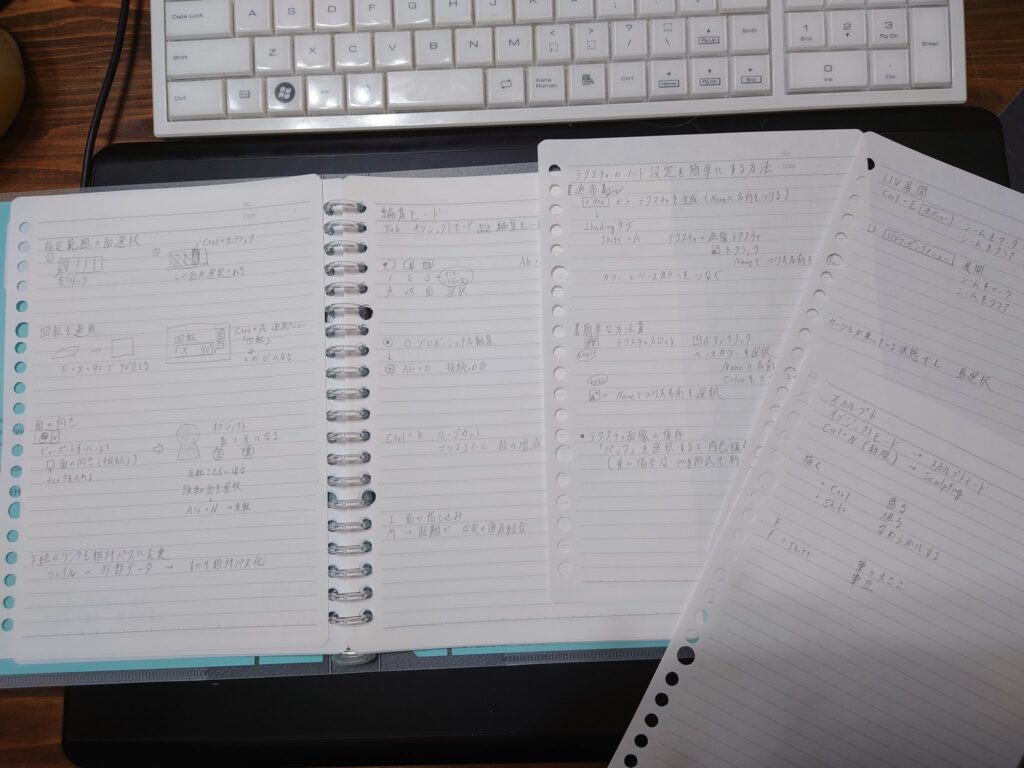 Caps Lock
A
S
D
F
G
Shift
Z
X
C
V
B
N
M
Shift
Ctrl
Fn
Alt
Kana
Roman
Ctrl
Home
Pg Up
Pg Dn
End
1
End
2
3
Pg Dn
0
Ins
Del
Enter
No.
Date
指定範囲の面選択
①
②
Ctrl+左クリック
左クリック
この面が選択される
回転を適用
R+X+90で90°立てる
回転
X 90°
Ctrl+A 適用メニュー
「回転」
Xが0°になる
面の向き
ビューポートオーバーレイ
面の向き
チェックを入れる
オブジェクト
青と赤になる
表
裏
反転こともい場合
該当の面を選択
↓
Alt+N → 反転
下絵のリンクを相対パスに変更
ファイル → 外部データ → すべて相対パス化
編集モード
Tab オブジェクトモード 編集モード
1 2 3
点 辺 面 選択
O プロポーショナル編集
↓
Alt+O 接続のみ
Ctrl+R ループカット
マウスホイール 数の増減
I 面の差し込み
M → 距離で 中央の頂点結合
No.
Date
テクスチャのノード設定を簡単にする方法
【通常】
+New から テクスチャを生成(Nameに名前をつける)
↓
Shadingタブ
Shift+A テクスチャ→画像テクスチャ
をクリック
Nameでつけた名前を
カラーとベースカラーをつなぐ
【簡単な方法】
テクスチャスロット +ボタンクリック
ベースカラーを選択
Nameに名前
Colorを
Nameでつけた名前を選択
・テクスチャ画像の保存
「パック」を選択すると内包保
(重い場合は png形式で別
UV展開
Ctrl+E
シームをマーク
シームをクリア
U
展開
シームをマーク
シームをクリア
カーソルが乗ってる状態でL 島選択
スカルプト
オブジェクトモード → スカルプトモード
Ctrl+N(新規) → Sculpting
描く 盛る
+Ctrl 掘る
+Shift なめらかにする
F 筆の太さ
F+Shift 筆圧